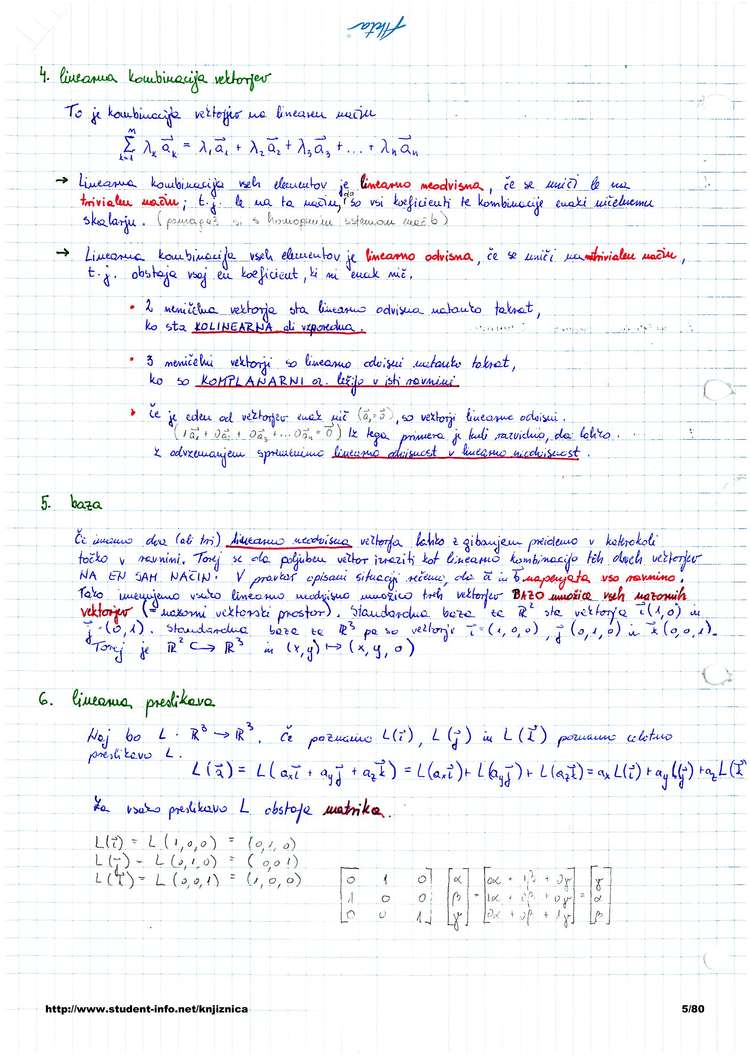 4. linearna kombinacija vektorjev
To je kombinacija vektorjev na linearen način
n Σ k=1 λₖ a⃗ₖ = λ₁a⃗₁ + λ₂a⃗₂ + λ₃a⃗₃ + ... + λₙa⃗ₙ
→ Linearna kombinacija vseh elementov je linearno neodvisna, če se uniči le na
trivialen način; t.j. le na ta način, da so vsi koeficienti te kombinacije enaki ničelnemu
skalarju. (s homogenim sistemom enačb)
→ Linearna kombinacija vseh elementov je linearno odvisna, če se uniči na netrivialen način,
t.j. obstaja vsaj en koeficient, ki ni enak nič.
• 2 neničelna vektorja sta linearno odvisna natanko takrat,
ko sta KOLINEARNA ali vzporedna.
• 3 neničelni vektorji so linearno odvisni natanko takrat,
ko so KOMPLANARNI oz. ležijo v isti ravnini
• če je eden od vektorjev enak nič (a⃗₁=0⃗), so vektorji linearno odvisni.
(1a⃗₁ + 0a⃗₂ + 0a⃗₃ + ... 0a⃗ₙ = 0⃗) Iz tega primera je tudi razvidno, da lahko
z odvzemanjem spremenimo linearno odvisnost v linearno neodvisnost.
5. baza
Če imamo dva (ali tri) linearno neodvisna vektorja lahko z gibanjem preidemo v katerokoli
točko v ravnini. Torej se da poljuben vektor izraziti kot linearno kombinacijo teh dveh vektorjev
NA EN SAM NAČIN. V pravkar opisani situaciji rečemo, da a⃗ in b⃗ napenjata vso ravnino.
Tako imenujemo vsako linearno neodvisno množico treh vektorjev BAZO množice vseh nazornih
vektorjev (= nazorni vektorski prostor). Standardna baza za ℝ² sta vektorja i⃗(1,0) in
j⃗=(0,1). Standardna baza za ℝ³ pa so vektorji i⃗=(1,0,0), j⃗(0,1,0) in k⃗(0,0,1).
Torej je ℝ² ↪ ℝ³ in (x,y) ↦ (x,y,0)
6. linearna preslikava
Naj bo L : ℝ³ → ℝ³. Če poznamo L(i⃗), L(j⃗) in L(k⃗) poznamo celotno
preslikavo L.
L(a⃗) = L(aₓi⃗ + a_yj⃗ + a_zk⃗) = L(aₓi⃗) + L(a_yj⃗) + L(a_zk⃗) = aₓL(i⃗) + a_yL(j⃗) + a_zL(k⃗
Za vsako preslikavo L obstaja matrika.
L(i⃗) = L(1,0,0) = (0,1,0)
L(j⃗) = L(0,1,0) = (0,0,1)
L(k⃗) = L(0,0,1) = (1,0,0)
[0 1 0] [α] [0α + 1β + 0γ] [γ]
[1 0 0] [β] = [1α + 0β + 0γ] = [α]
[0 0 1] [γ] [0α + 0β + 1γ] [β]
http://www.student-info.net/knjiznica
5/80